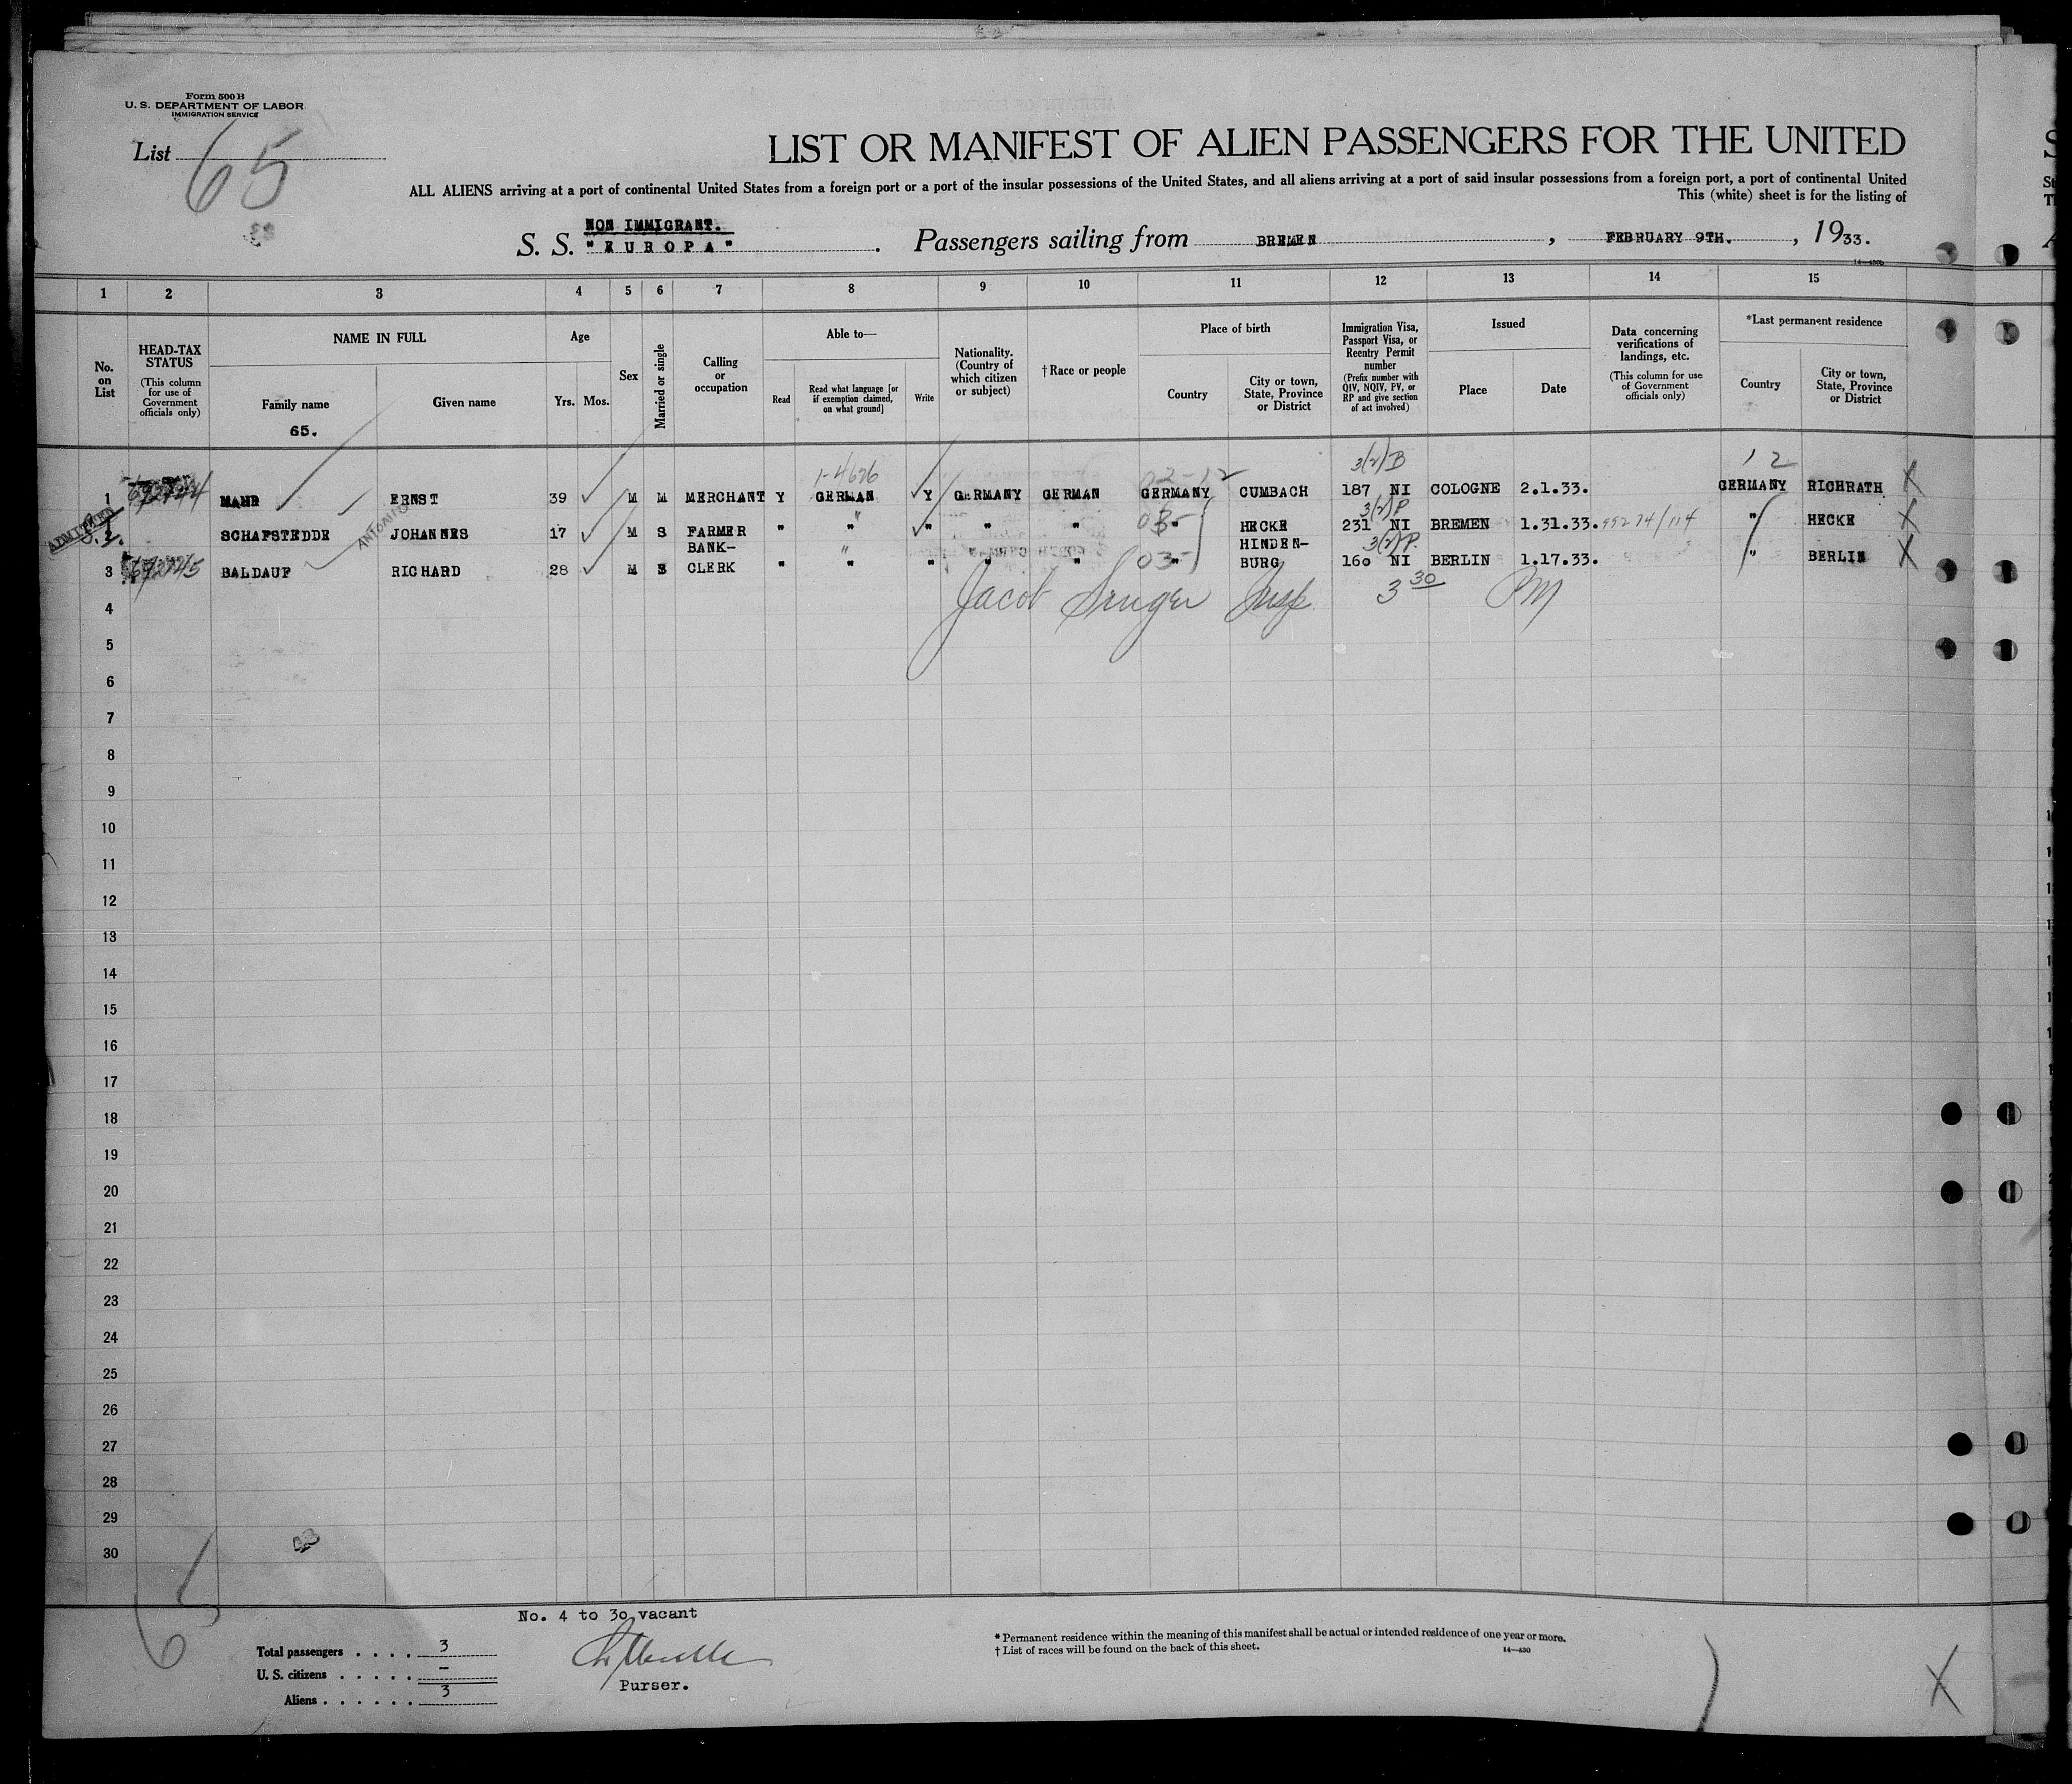 Form 500 B
U. S. DEPARTMENT OF LABOR
IMMIGRATION SERVICE
List 65
LIST OR MANIFEST OF ALIEN PASSENGERS FOR THE UNITED
ALL ALIENS arriving at a port of continental United States from a foreign port or a port of the insular possessions of the United States, and all aliens arriving at a port of said insular possessions from a foreign port, a port of continental United
This (white) sheet is for the listing of
NON IMMIGRANT.
S. S. "EUROPA". Passengers sailing from BREMEN, FEBRUARY 9TH., 1933.
1 2 3 4 5 6 7 8 9 10 11 12 13 14 15
No. on List
HEAD-TAX STATUS
(This column for use of Government officials only)
NAME IN FULL
Family name
Given name
65.
Age
Yrs. Mos.
Sex
Married or single
Calling or occupation
Able to—
Read
Read what language [or if exemption claimed, on what ground]
Write
Nationality. (Country of which citizen or subject)
†Race or people
Place of birth
Country
City or town, State, Province or District
Immigration Visa, Passport Visa, or Reentry Permit number
(Prefix number with QIV, NQIV, PV, or RP and give section of act involved)
Issued
Place
Date
Data concerning verifications of landings, etc.
(This column for use of Government officials only)
*Last permanent residence
Country
City or town, State, Province or District
3(2)B
12
1 MAHR ERNST 39 M M MERCHANT Y GERMAN Y GERMANY GERMAN GERMANY CUMBACH 187 NI COLOGNE 2.1.33. GERMANY RICHRATH X
3(2)P
ADMITTED
S.I. SCHAFSTEDDE ANTONIO JOHANNES 17 M S FARMER " " " " " " HECKE 231 NI BREMEN 1.31.33. 99274/114 " HECKE X
BANK- HINDEN- 3(2)P.
3 BALDAUF RICHARD 28 M S CLERK " " " " " " BURG 160 NI BERLIN 1.17.33. " BERLIN X
4 Jacob Insp. 3 30 PM
5
6
7
8
9
10
11
12
13
14
15
16
17
18
19
20
21
22
23
24
25
26
27
28
29
30
No. 4 to 30 vacant
Total passengers . . . . 3
U. S. citizens . . . . . –
Aliens . . . . . . 3
Purser.
* Permanent residence within the meaning of this manifest shall be actual or intended residence of one year or more.
† List of races will be found on the back of this sheet.
14—430
X